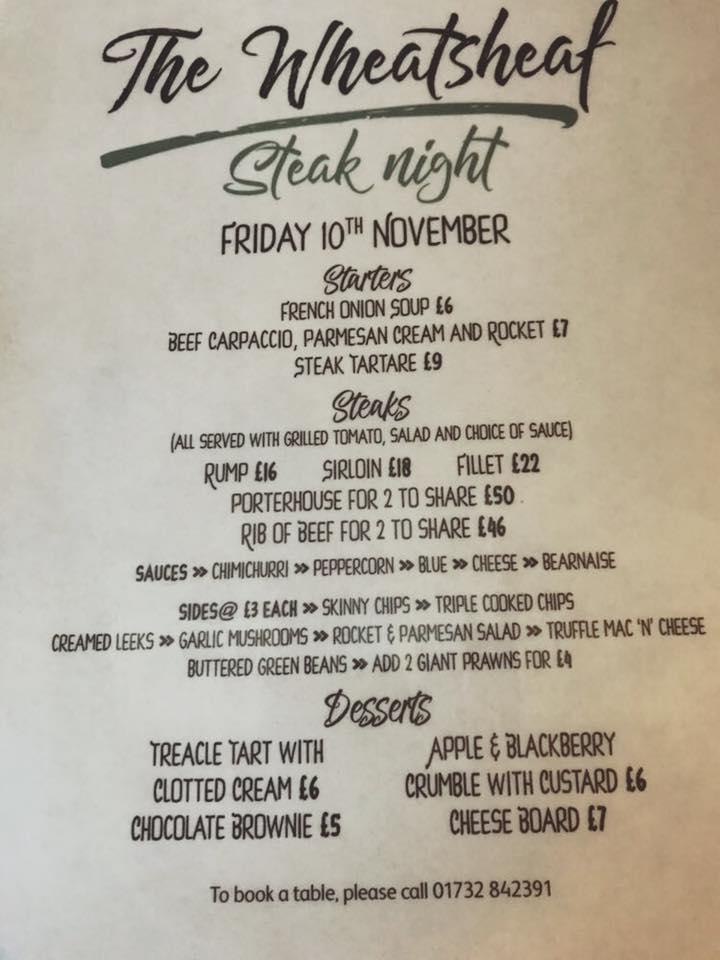 The Wheatsheaf
Steak night
FRIDAY 10TH NOVEMBER
Starters
FRENCH ONION SOUP £6
BEEF CARPACCIO, PARMESAN CREAM AND ROCKET £7
STEAK TARTARE £9
Steaks
(ALL SERVED WITH GRILLED TOMATO, SALAD AND CHOICE OF SAUCE)
RUMP £16 SIRLOIN £18 FILLET £22
PORTERHOUSE FOR 2 TO SHARE £50
RIB OF BEEF FOR 2 TO SHARE £46
SAUCES » CHIMICHURRI » PEPPERCORN » BLUE » CHEESE » BEARNAISE
SIDES@ £3 EACH » SKINNY CHIPS » TRIPLE COOKED CHIPS
CREAMED LEEKS » GARLIC MUSHROOMS » ROCKET & PARMESAN SALAD » TRUFFLE MAC 'N' CHEESE
BUTTERED GREEN BEANS » ADD 2 GIANT PRAWNS FOR £4
Desserts
TREACLE TART WITH
CLOTTED CREAM £6
CHOCOLATE BROWNIE £5
APPLE & BLACKBERRY
CRUMBLE WITH CUSTARD £6
CHEESE BOARD £7
To book a table, please call 01732 842391